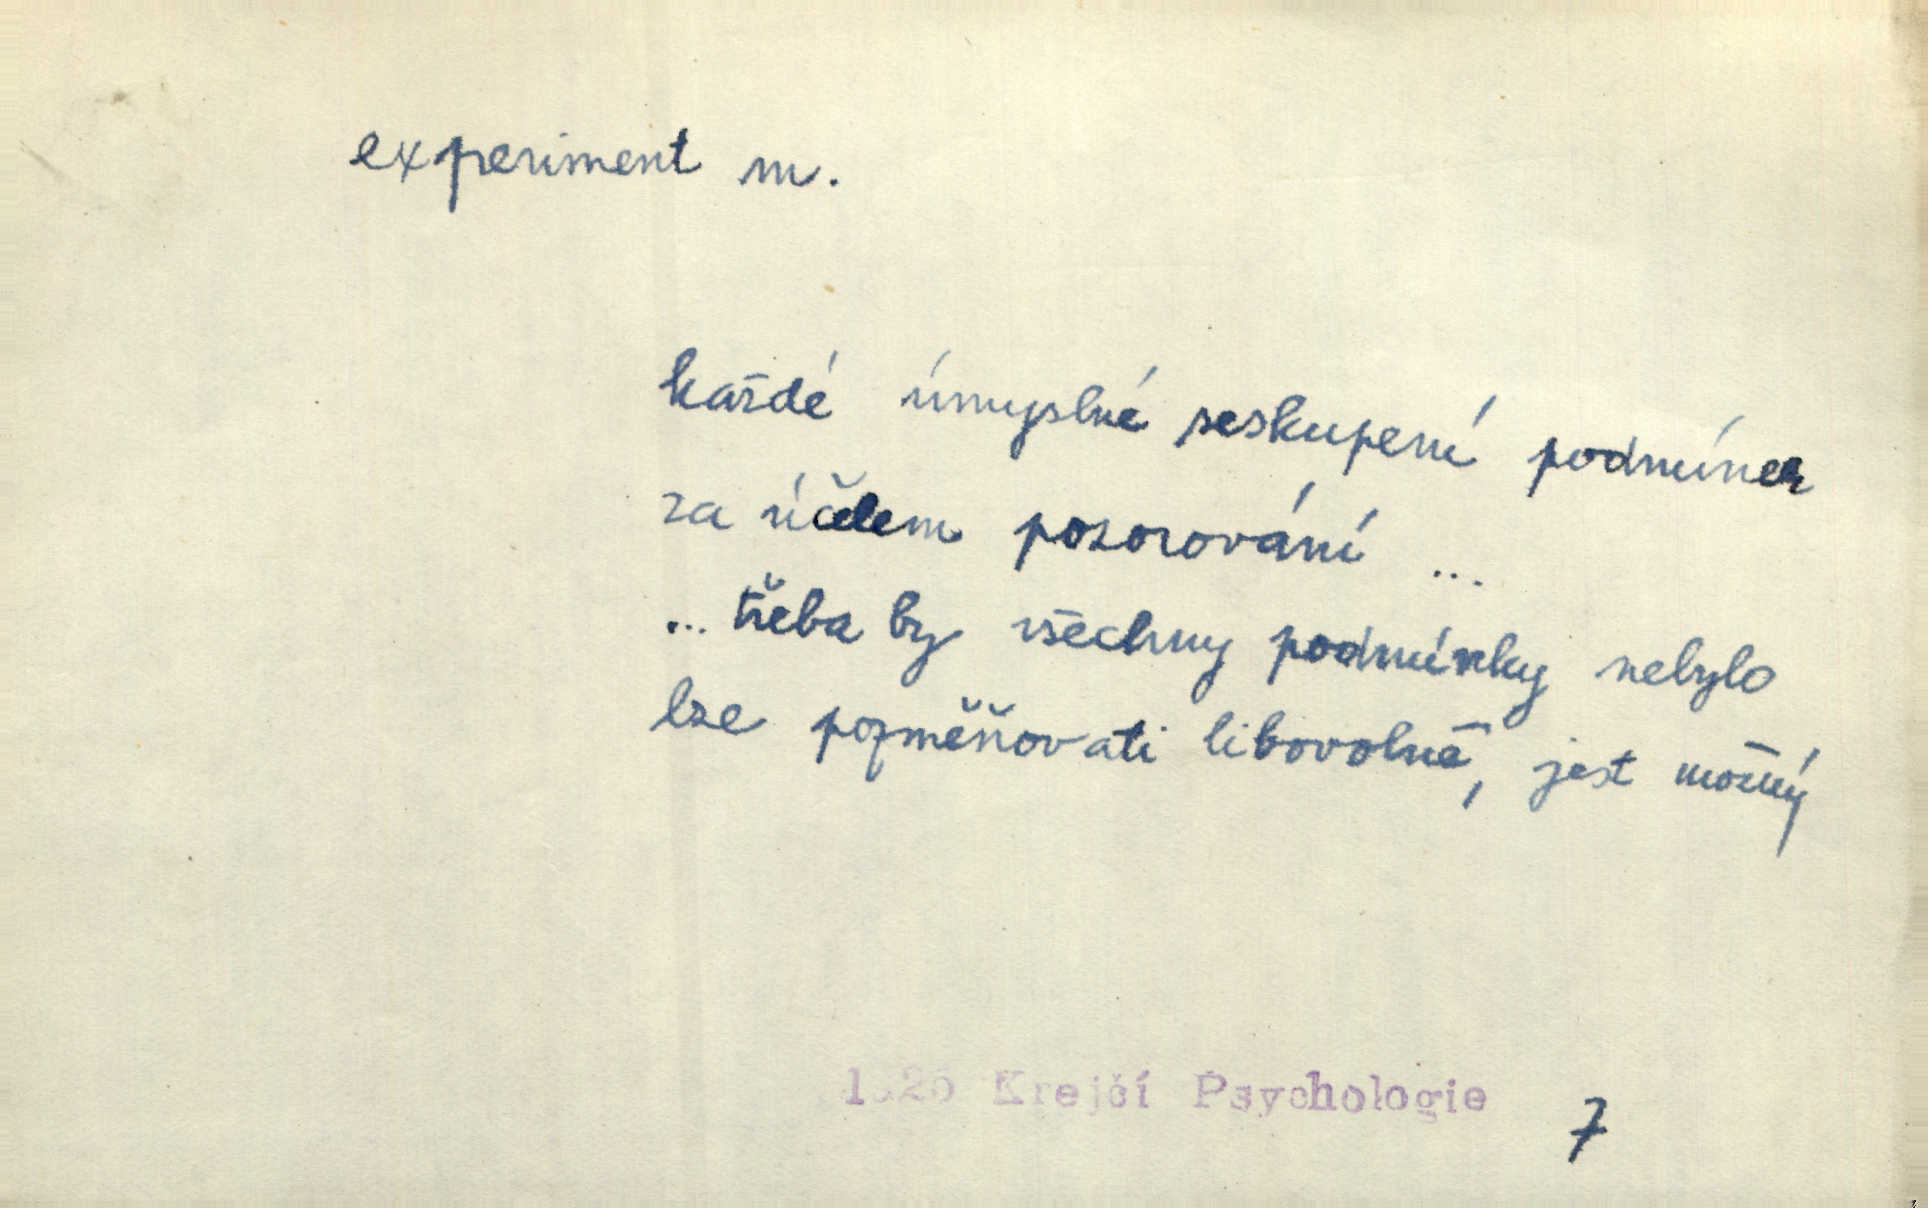 experiment m.
každé úmyslné seskupení podmínek
za účelem pozorování ...
... třeba by všechny podmínky nebylo
lze pozměňovati libovolně, jest možný
Krejčí Psychologie 7